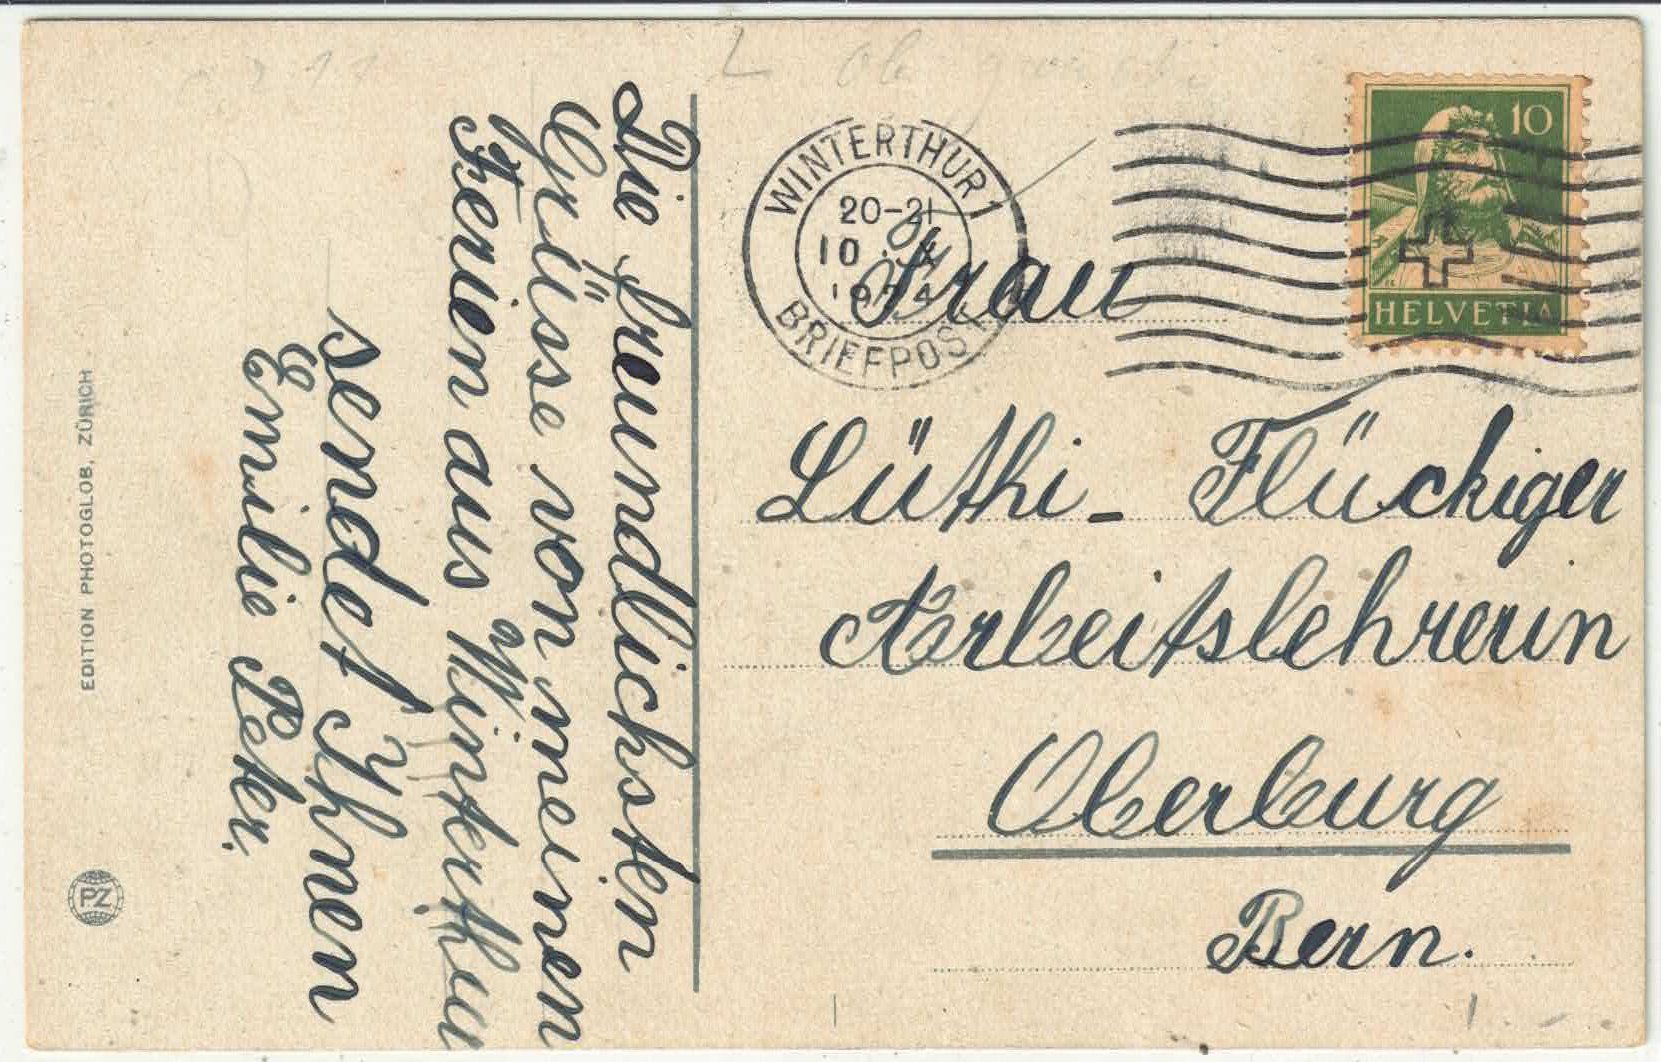 Die freundlichsten
Grüsse von meinen
Ferien aus Winterthur
sendet Ihnen
Emilie Peter.
EDITION PHOTOGLOB, ZÜRICH
PZ
WINTERTHUR 1
20-21
10
BRIEFPOST
10
HELVETIA
Frau
Lüthi - Flückiger
Arbeitslehrerin
Oberburg
Bern.